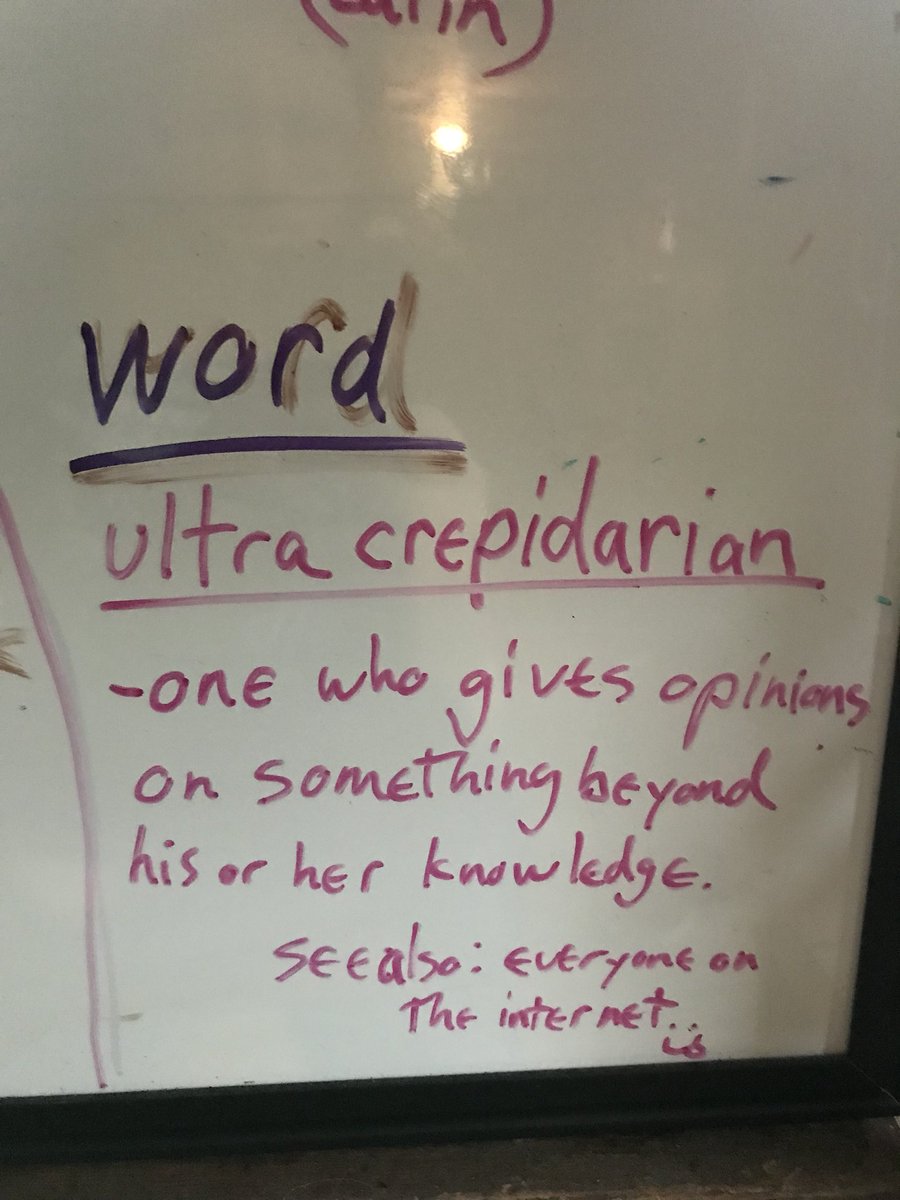 word
ultra crepidarian
-one who gives opinions
on something beyond
his or her knowledge.
see also: everyone on
The internet.